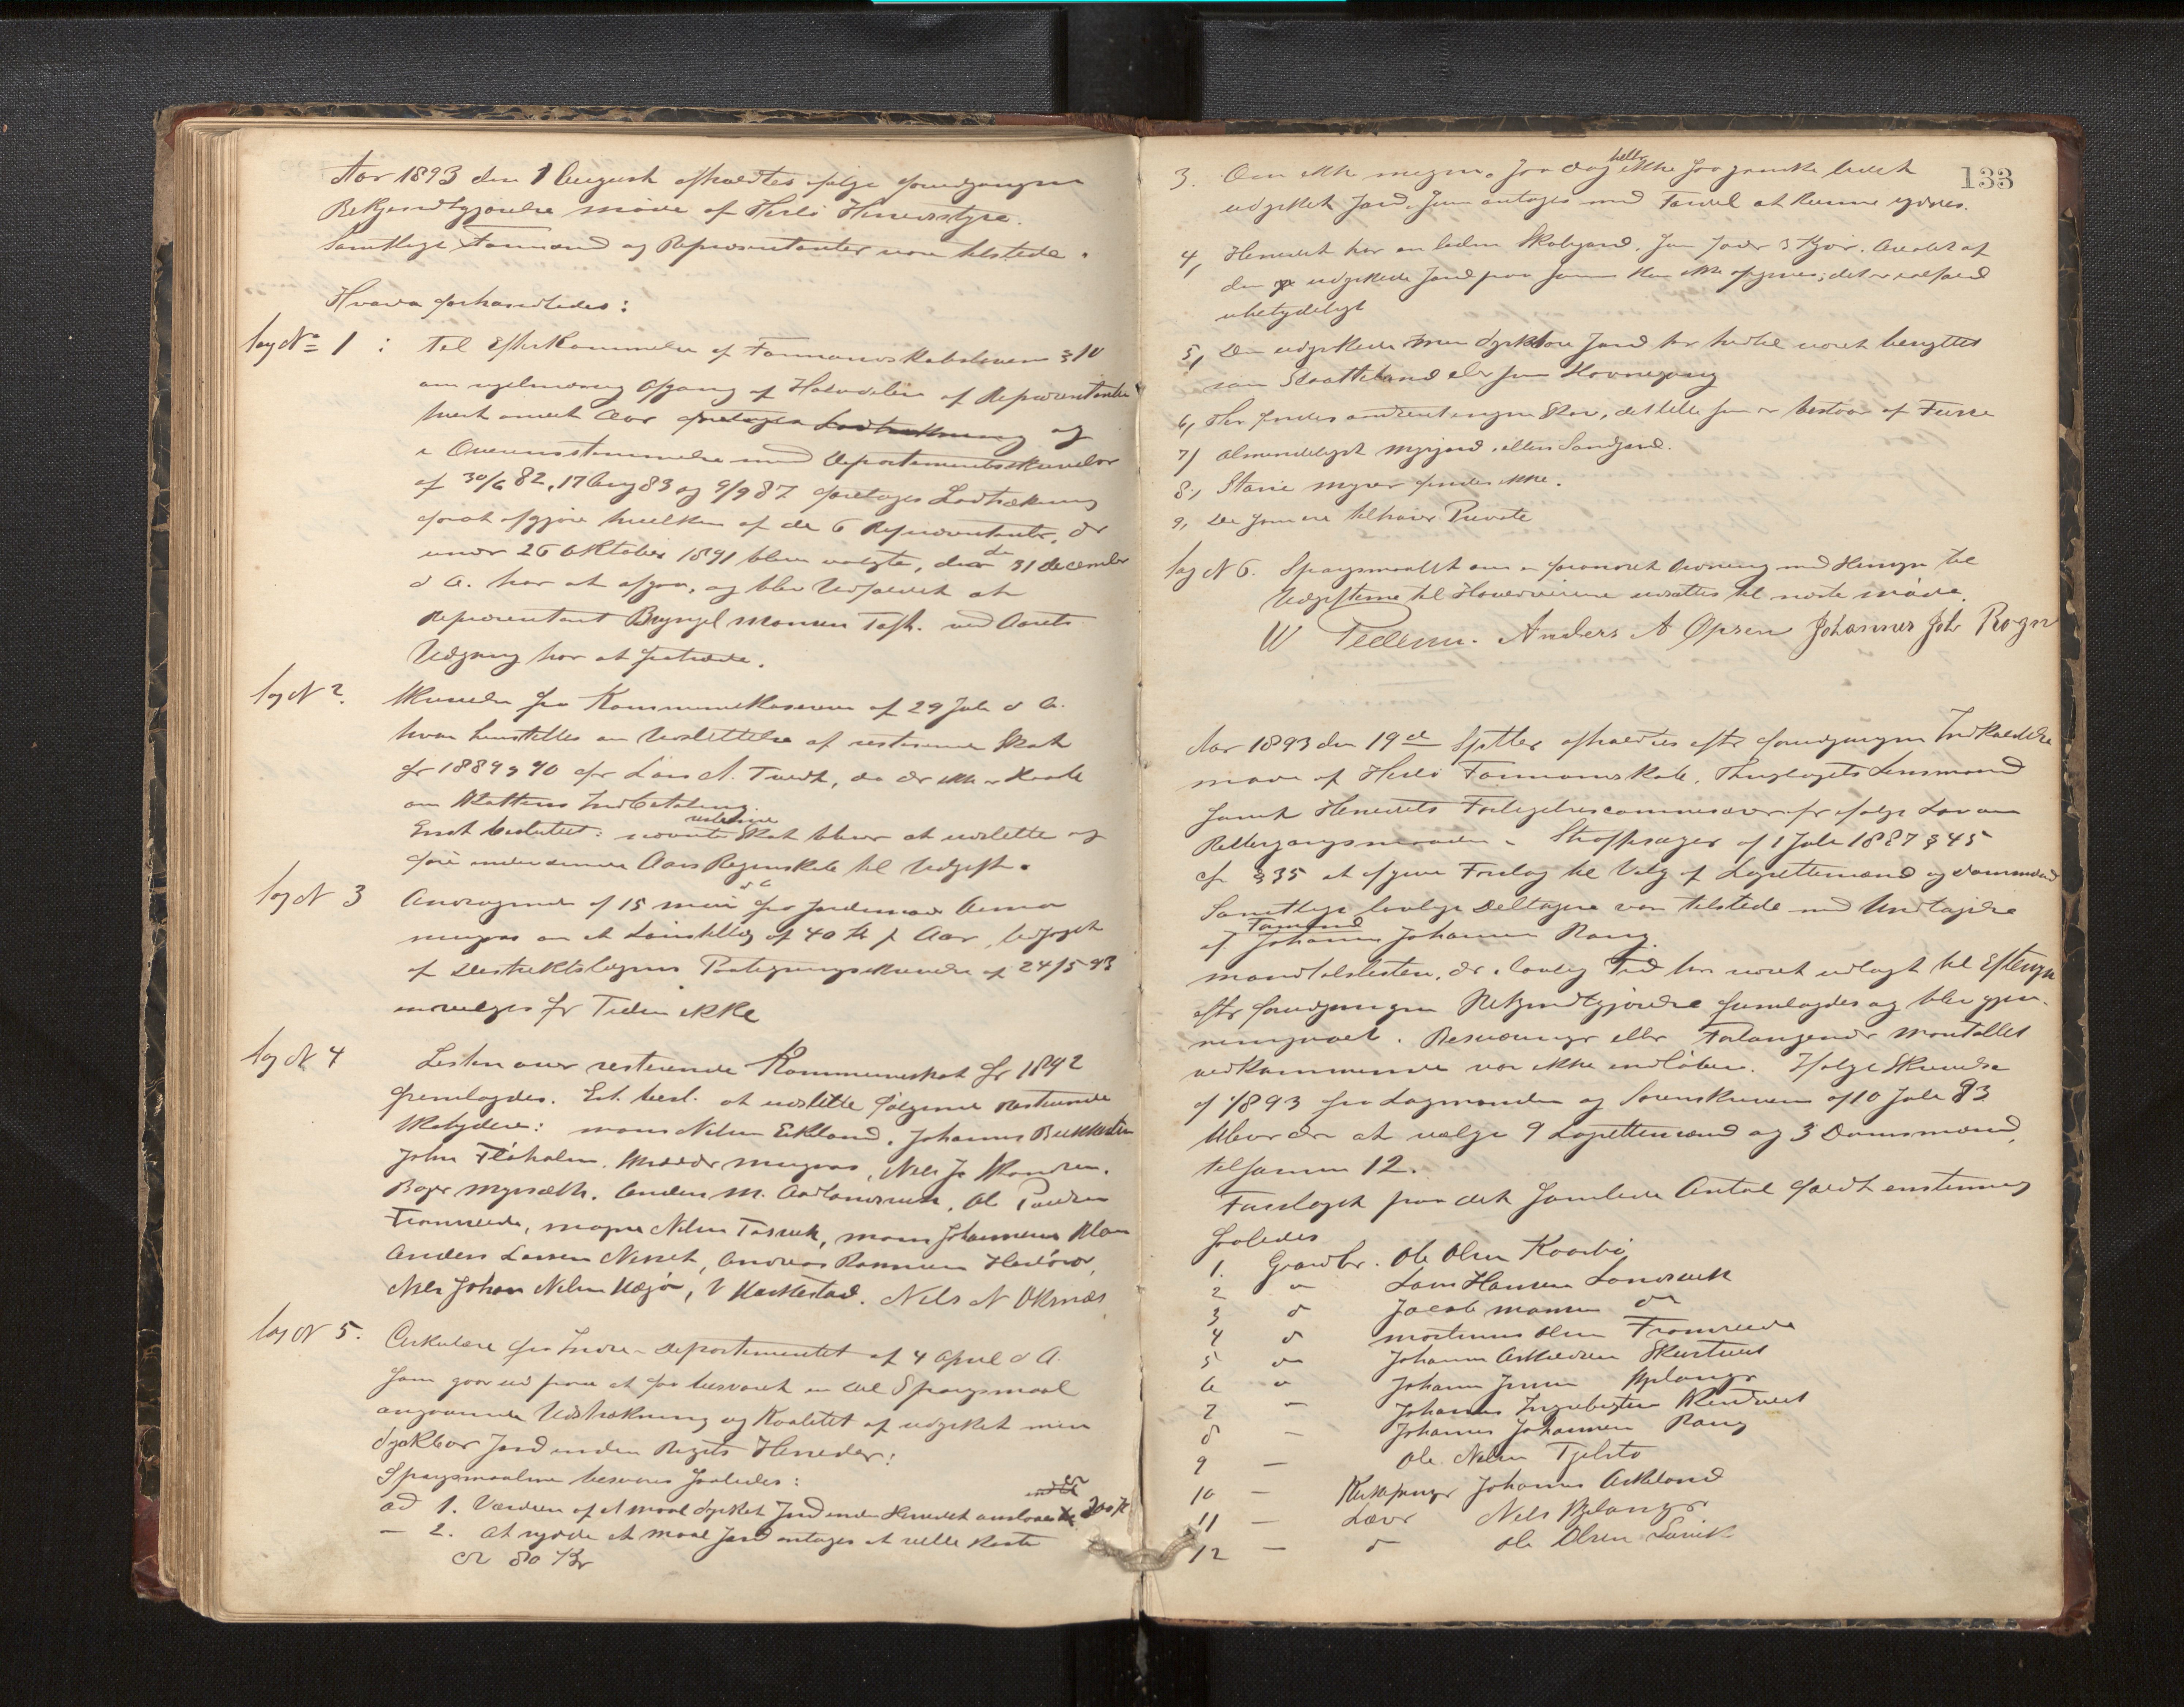 Aar 1893 den 1 August afholdtes ifølge forudgangen
Bekjendtgjørelse møde af Herlø Herredsstyre.
Samtlige Formænd og Repræsentanter vare tilstede.
Hvorda forhandledes:
Sag No 1 : Til Efterkommelse af Formannskabsloven § 10
om regelmæssig Afgang af Halvdelen af Repræsentanter
hvert andet Aar foretages Lodtrækning og
i Overensstemmelse med Departementsskrivelser
af 30/6 82, 17 Aug 83 og 9/9 87 foretages Lodtrækning
forat afgjøre hvilken af de 6 Repræsentanter, der
under 26 Oktober 1891 blev valgte, der den 31 December
d A. har at afgaa, og blev Udfaldet at
Repræsentant Bryngel Monsen Toft. ved Aarets
Udgang har at fratræde.
Sag N 2. Skrivelse fra Kommunekassereren af 29 Juli d A.
hvori henstilles om Udslettelse af resterende Skat
for 1889 & 90 for Lars A. Tvedt, da der ikke er Haab
om Skattens Indbetaling.
Enst besluttet: nævnte resterende Skat bliver at udslette og
føre under denne Aars Regnskab til Udgift.
Sag N 3 Andragende af 15 mai d A fra Jordemoder Anna
Mengas om et Lønstillæg af 40 Kr p Aar, ledsaget
af Distriktslægens Paategningsskrivelse af 24/5 93
indvilges for Tiden ikke
Sag N 4 Listen over resterende Kommuneskat for 1892
fremlagdes. Ent. besl. at udslette følgende resterende
Skatydere: Mons Nilsen Eikland, Johannes Bukkesten
John Fløholm, Nils Js Skandsen.
Anders M. Aadlandsvik, Ole Paulsen
Fromreide, Mogne Nilsen Tosvik, Mons Johannesen
Anders Larsen Nesset, Andreas Rasmussen
Nils Johan Nilsen Uksjø, V Markestad. Nils N Oksnæs
Sag N 5. Cirkulære fra Indre-Departementet af 4 April d A.
som gaar ud paa at faa besvaret en del Spørgsmaal
angaaende Udstrækning og Kvalitet af udyrket men
dyrkbar Jord inden Rigets Herreder.
Spørgsmaalene besvares saaledes:
ad 1. Værdien af et maal dyrket Jord inden Herredet ansloaes 200 K
— 2. At rydde et maal Jord antages at ville koste
ca 80 Kr
133
3. Om ikke megen, saa dog heller ikke saa ganske lidet
udyrket Jord, som antages med Fordel at kunne ryddes.
4, Herredet har en liden Skolejord, som føder 3 Kjør. Arealet af
den udyrkede Jord paa samme kan ikke opgives; det er ialfald
ubetydeligt
5, Den udyrkede men dyrkbare Jord har hidtil været benyttet
som Slaatteland eller som Havnegang
6, Her findes omtrent ingen Skov, det lille som er bestaar af Furu
7, Almindeligst Myrjord, ellers Sandjord.
8, Store Myrer findes ikke.
9, De som ere tilhører Private
Sag N 6. Spørgsmaalet om en forandret Ordning med Hensyn til
Udgifterne til Hovedveiene udsattes til næste møde.
W Pedersen. Anders A Opsen Johannes Joh Rogn
Aar 1893 den 19de Septbr afholdtes efter forudgangen Indkaldelse
møde af Herlø Formannskab, Thinglagets Lensmand
samt Herredets Forligelsescommissærer for ifølge Lov om
Rettergangsmaaden i Straffesager af 1 Juli 1887 § 45
cfr § 35 at afgive Forslag til Valg af Lagrettemænd og Domsmænd
Samtlige lovlige Deltagere var tilstede med Undtagelse
af Formand Johannes Johannesen Rong.
Mandtalslisten, der i lovlig Tid har været udlagt til Eftersyn
efter forudgangen Bekjendtgjørelse fremlagdes og blev gjen-
nemgaaet. Besværinger eller Forlangender Mantallet
vedkommende var ikke indløbne. Ifølge Skrivelse
af 1893 fra Lagmanden og Sorenskriveren af 10 Juli 93
bliver der at vælge 9 Lagrettemænd og 3 Domsmænd,
tilsammen 12.
Forslaget paa det samlede Antal faldt enstemmig
saaledes
1. Gaardbr. Ole Olsen Kaarbø
2 " Lars Hansen Landsvik
3 d Jacob Monsen do
4 d Mortinus Olsen Fromreide
5 " Johannes Askildsen Skurtveit
6 " Johannes Jensen Bjelanger
7 — Johannes Ingebrigtsen Rindveit
8 — Johannes Johannesen Rong
9 — Ole Nilsen Tjelsto
10 — Kirkesanger Johannes Askeland
11 — Lærer Nils Bjelanger
12 — d Ole Olsen Sævik